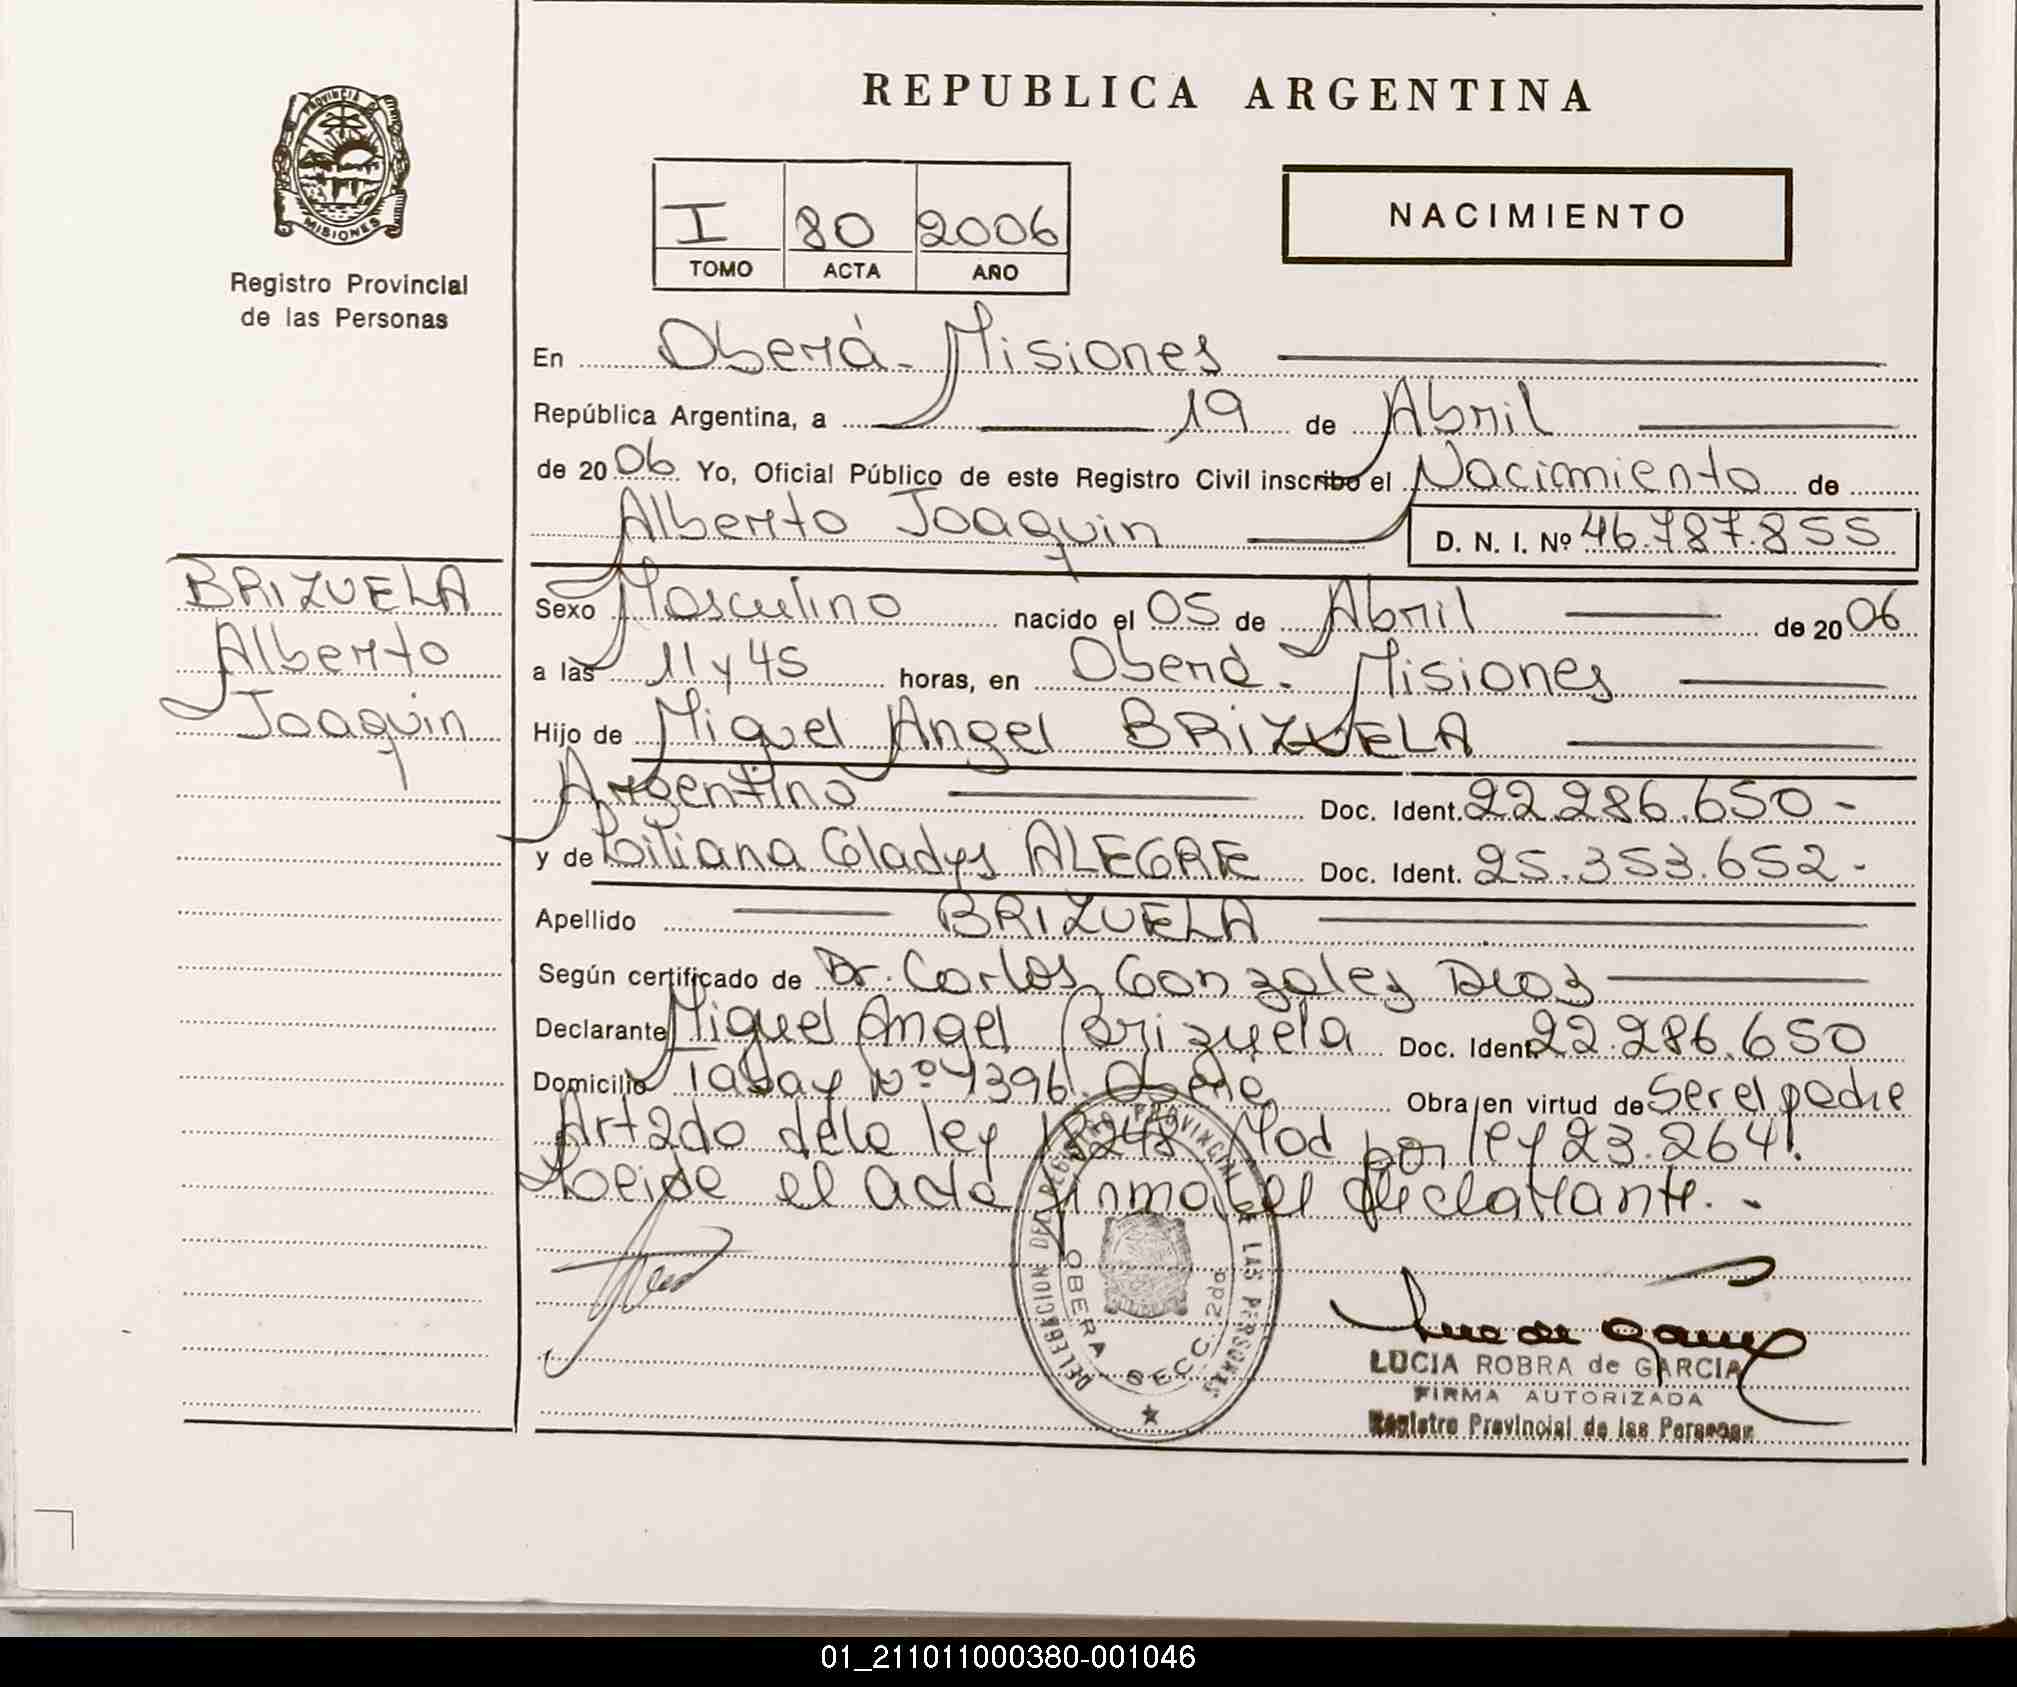 REPUBLICA ARGENTINA
PROVINCIA D
MISIONES
Registro Provincial
de las Personas
I 80 2006
TOMO ACTA AÑO
NACIMIENTO
En Oberá - Misiones
República Argentina, a 19 de Abril
de 2006 Yo, Oficial Público de este Registro Civil inscribo el Nacimiento de
Alberto Joaquin D. N. I. Nº 46.787.855
BRIZUELA
Alberto
Joaquin
Sexo Masculino nacido el 05 de Abril de 2006
a las 11 y 45 horas, en Oberá - Misiones
Hijo de Miguel Angel BRIZUELA
Argentino Doc. Ident. 22.286.650-
y de Liliana Gladys ALEGRE Doc. Ident. 25.353.652-
Apellido BRIZUELA
Según certificado de Dr. Carlos Gonzalez Dios
Declarante Miguel Angel Brizuela Doc. Ident. 22.286.650
Domicilio Tabay Nº 1396. Oberá Obra en virtud de Ser el padre
Art 2do de la ley 18248 Mod por ley 23.264.
Leida el acta firma el declarante.-
DELEGACION DEL REGISTRO PROVINCIAL DE LAS PERSONAS
OBERA SECC. 2da
LUCIA ROBRA de GARCIA
FIRMA AUTORIZADA
Registro Provincial de las Personas
01_211011000380-001046